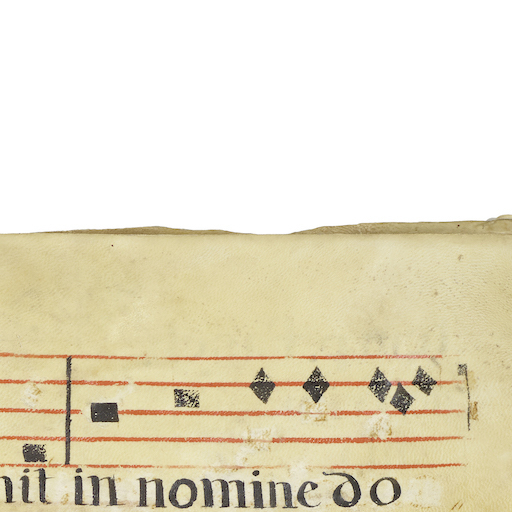 nit in nomine do